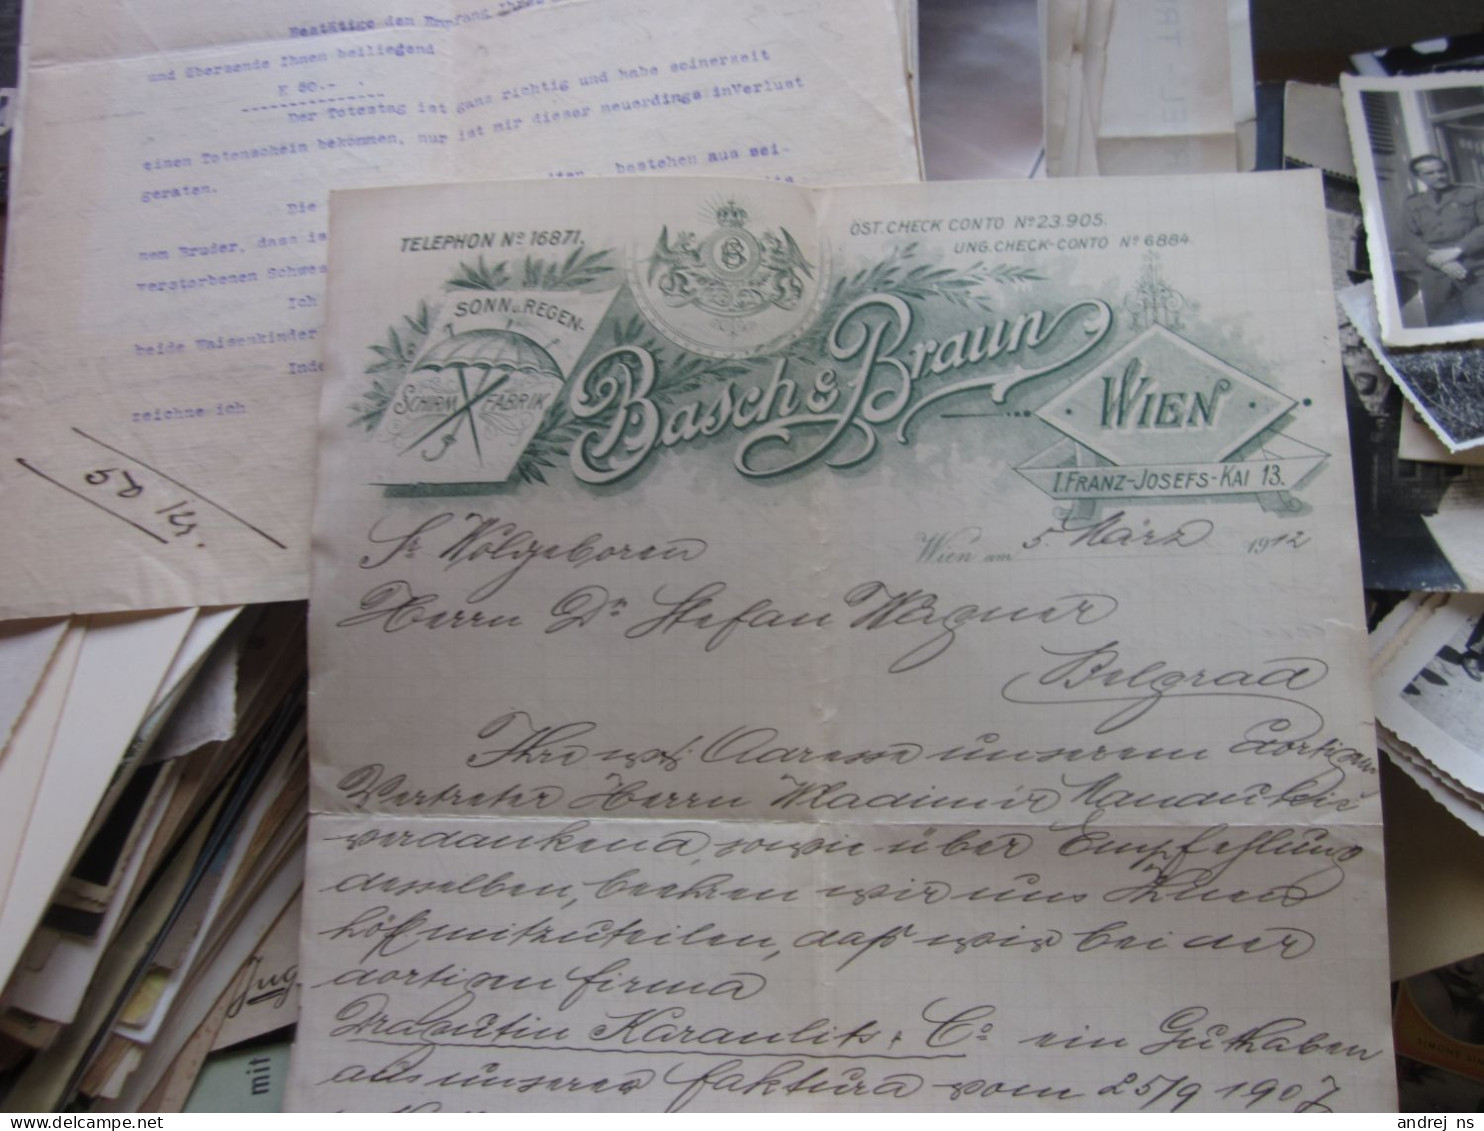 Bestätige den Empfang Ihres
und übersende Ihnen beiliegend
K 50.-
Der Totestag ist ganz richtig und habe seinerzeit
einen Totenschein bekommen, nur ist mir dieser neuerdings inVerlust
geraten.
Die bestehen aus sei-
nem Bruder, dass
verstorbenen
Ich
beide Waisenkinder
zeichne ich
50 Kr.
TELEPHON No 16871.
ÖST. CHECK CONTO No 23.905.
UNG. CHECK-CONTO No 6884.
SONN u. REGEN-
SCHIRM FABRIK
Basch & Braun
WIEN
I. FRANZ-JOSEFS-KAI 13.
Wien am 5. März 1912
Sr Wolgeboren
Herrn Dr Stefan Wagner
Belgrad
Ihre Adresse unserem dortigen
Vertreter Herrn Wladimir
verdankend, sowie über Empfehlung
desselben, beehren wir uns Ihnen
höfl mitzuteilen, daß wir bei der
dortigen firma
Dragutin Karaulits & Co ein Guthaben
als unserer faktura vom 25/9 1907
mit
andrej ns